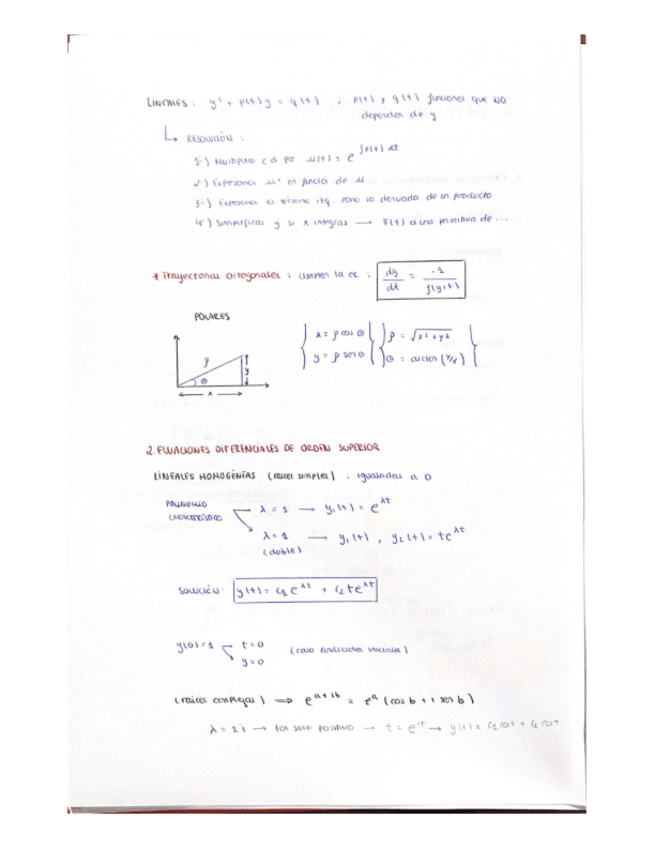 LINEALES : y' + p(t)y = q(t) ; p(t) y q(t) funciones que NO
dependen de y
↳ RESOLUCIÓN :
1-) Multiplico e.d. por μ(t) = e^∫p(t) dt
2-) Expresamos μ' en función de μ
3-) Expresamos el término izq. como la derivada de un producto
4-) Simplificas y si x integras → F(t) es una primitiva de ...
* Trayectorias Ortogonales : cumplen la ec : dy/dt = -1/f(y,t)
POLARES
{ x = ρ cos θ { ρ = √x²+y²
{ y = ρ sen θ { θ = arctan (y/x) {
ρ y
θ
x
2. ECUACIONES DIFERENCIALES DE ORDEN SUPERIOR
LINEALES HOMOGÉNEAS (raíces simples) : igualadas a 0
POLINOMIO
CARACTERÍSTICO → λ = 1 → y₁(t) = e^λt
λ = 1 → y₁(t) , y₂(t) = te^λt
(doble)
SOLUCIÓN : y(t) = c₁e^λt + c₂te^λt
y(0)=1 t=0
y=0 (como condiciones iniciales)
(raíces complejas) ⇒ e^a+ib = e^a (cos b + i sen b)
λ = ±i → tan solo positivo → t = e^it → y(t) =